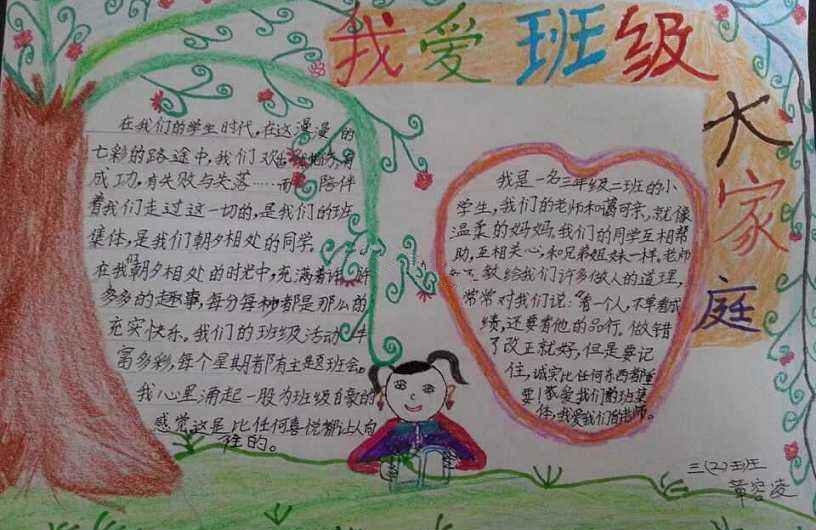 我爱班级
大家庭
在我们的学生时代,在这漫漫的
七彩的路途中,我们欢
成功,有失败与失落……而陪伴
着我们走过这一切的,是我们的班
集体,是我们朝夕相处的同学。
在我们朝夕相处的时光中,充满着许许
多多的趣事,每分每秒都是那么的
充实快乐。我们的班级活动丰
富多彩,每个星期都有主题班会。
我心里涌起一股为班级自豪的
感觉这是比任何喜悦都让人向
往的。
我是一名三年级二班的小
学生,我们的老师和蔼可亲,就像
温柔的妈妈我们的同学互相帮
助,互相关心,和兄弟姐妹一样,老师
教给我们许多做人的道理,
常常对我们说:"看一个人,不单看成
绩,还要看他的品行,做错
了改正就好,但是要记
住,诚实比任何东西都重
要!我爱我们的班集
体,我爱我们的老师。
三(2)班
黄容凌